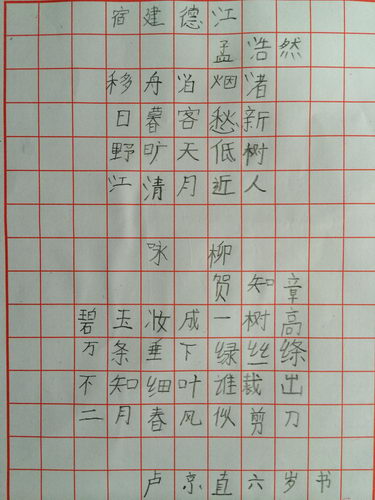 宿建德江
孟浩然
移舟泊烟渚
日暮客愁新
野旷天低树
江清月近人
咏柳
贺知章
碧玉妆成一树高
万条垂下绿丝绦
不知细叶谁裁出
二月春风似剪刀
卢京直六岁书